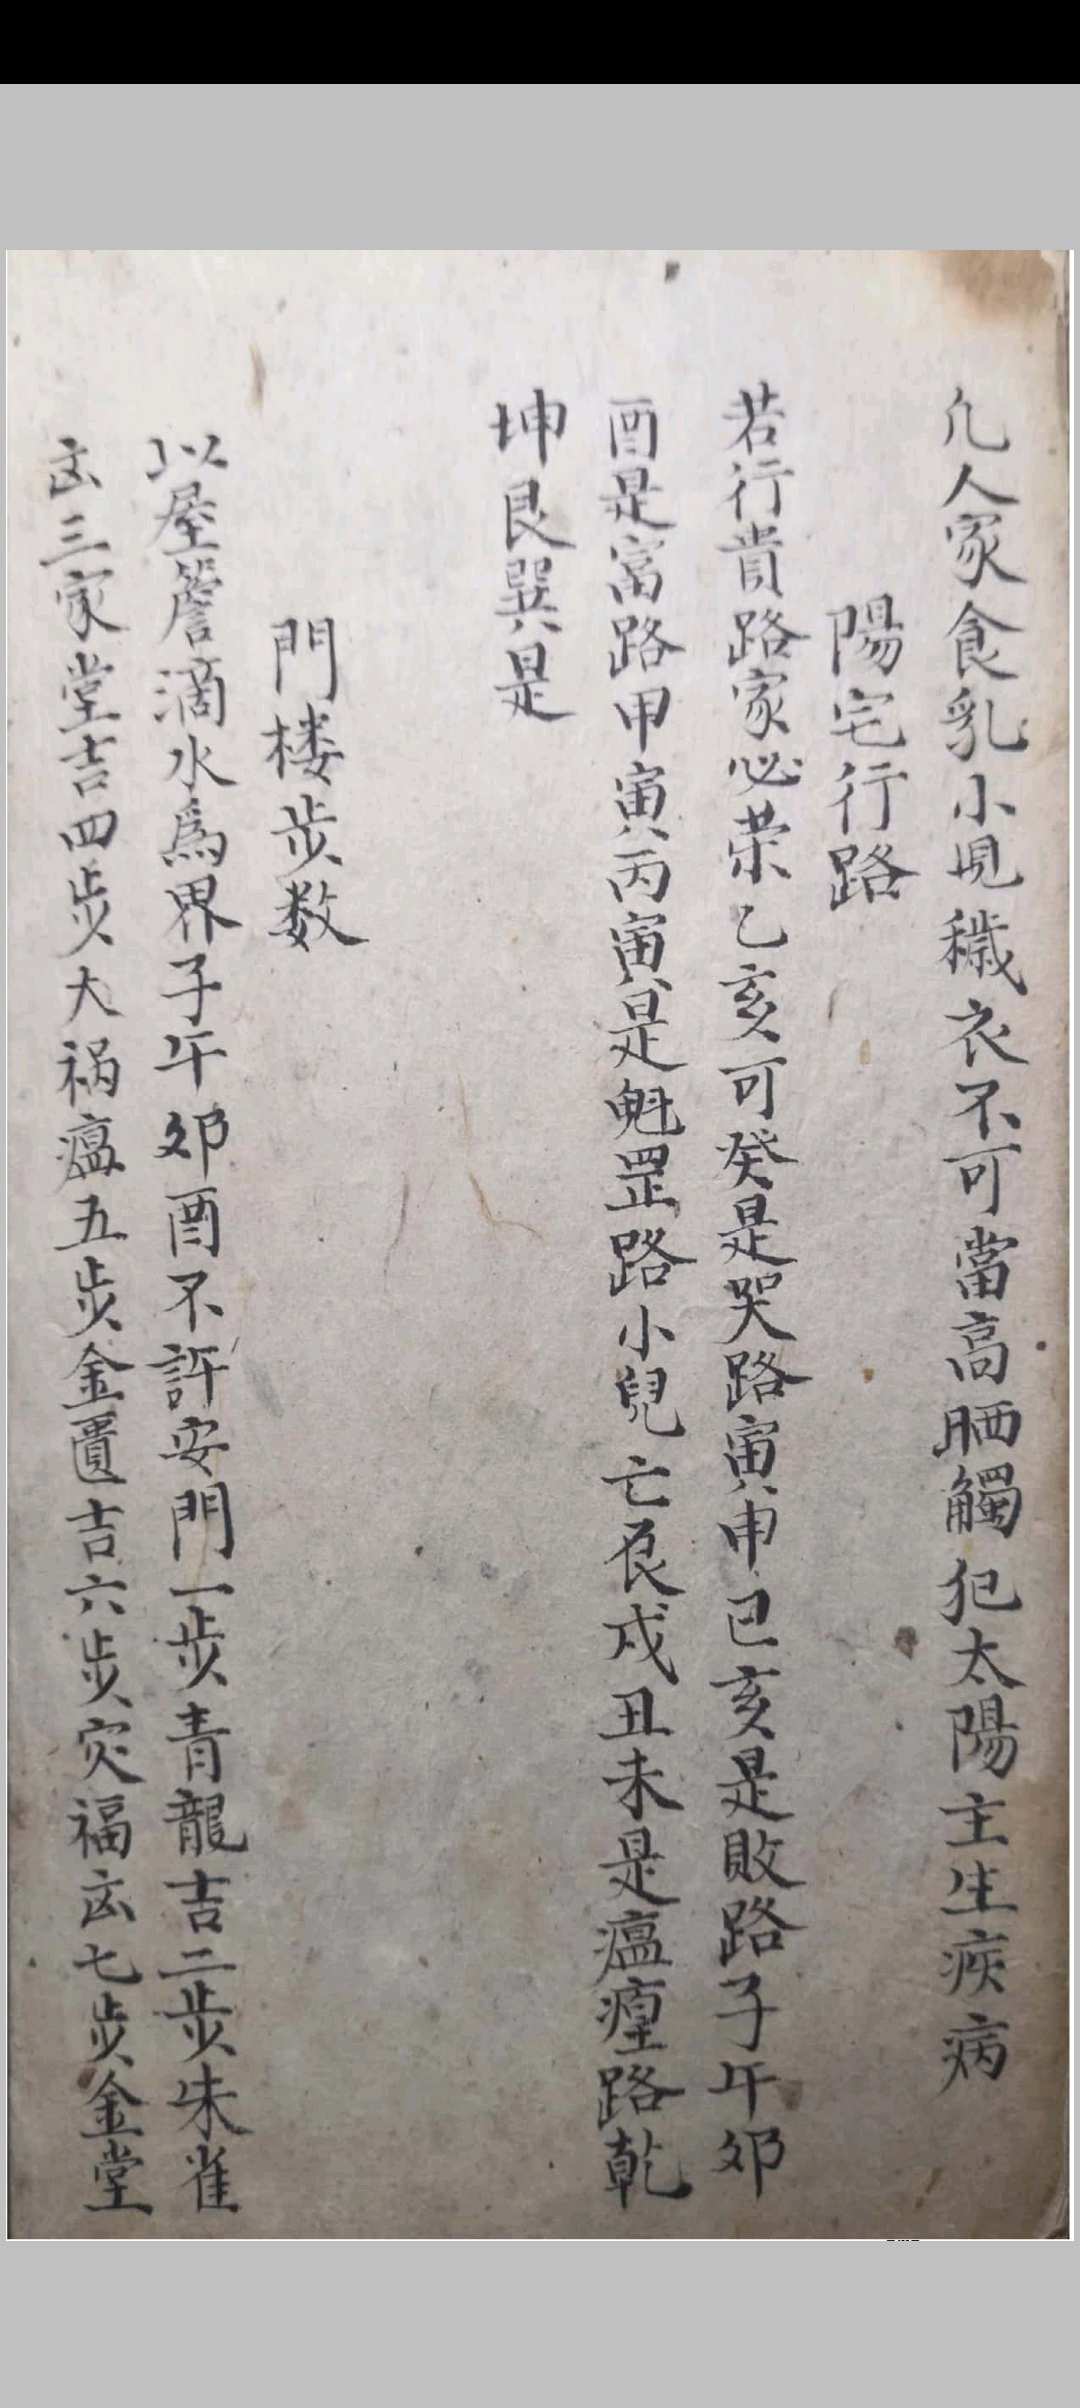 凢人家食乳小児穢衣不可當高晒觸犯太陽主生疾病
陽宅行路
若行貴路家必荣乙亥可癸是哭路寅申巳亥是敗路子午夘
酉是富路甲寅丙寅是魁罡路小兒亡艮戍丑未是瘟瘟路乾
坤艮巽是
門楼步数
以屋簷滴水爲界子午夘酉不許安門一步青龍吉二步朱雀
㐫三家堂吉四步大祸瘟五步金匱吉六步灾福㐫七步金堂